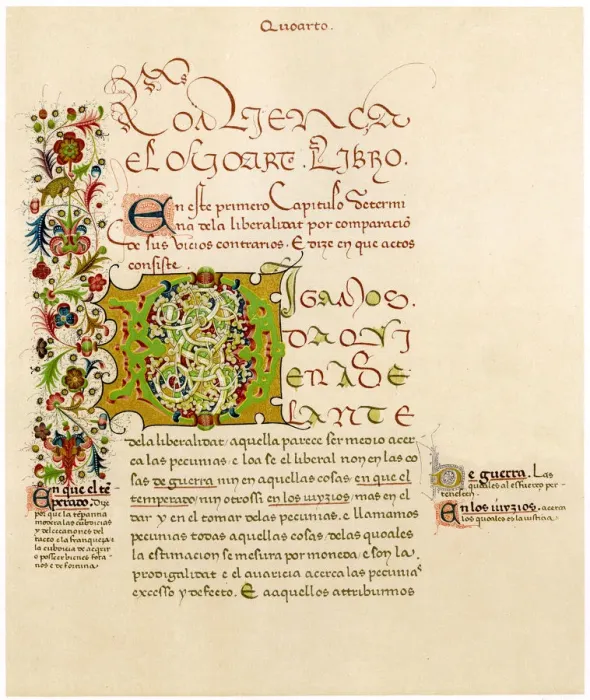 Quarto.
COMIENCA
EL QUARTO LIBRO.
En este primero Capitulo determi
na dela liberalidat por comparacio
de sus vicios contrarios. E dize en que actos
consiste.
DIGAMOS.
DAQVI
ENADE
LANTE
dela liberalidat aquella parece ser medio acer
ca las pecunias. e loa se el liberal non en las co
sas de guerra nin en aquellas cosas. en que el
temperado nin otrossi en los iuyzios. mas en el
dar y en el tomar delas pecunias. e llamamos
pecunias todas aquellas cosas. delas quales
la estimacion se mesura por moneda. e son la
prodigalitat e el auaricia acerca las pecunias
excesso y defecto. E aaquellos attribuimos
En que el te
perado. Dize
por que la tepança
modera las cubdicias
y delectaciones del
tacto e la franqueza
la cubdicia de acquir
e posseer bienes
e de fortuna
De guerra. Las
quales al esfuerço per
tenescen.
En los iuyzios. acerca
los quales es la iusticia.